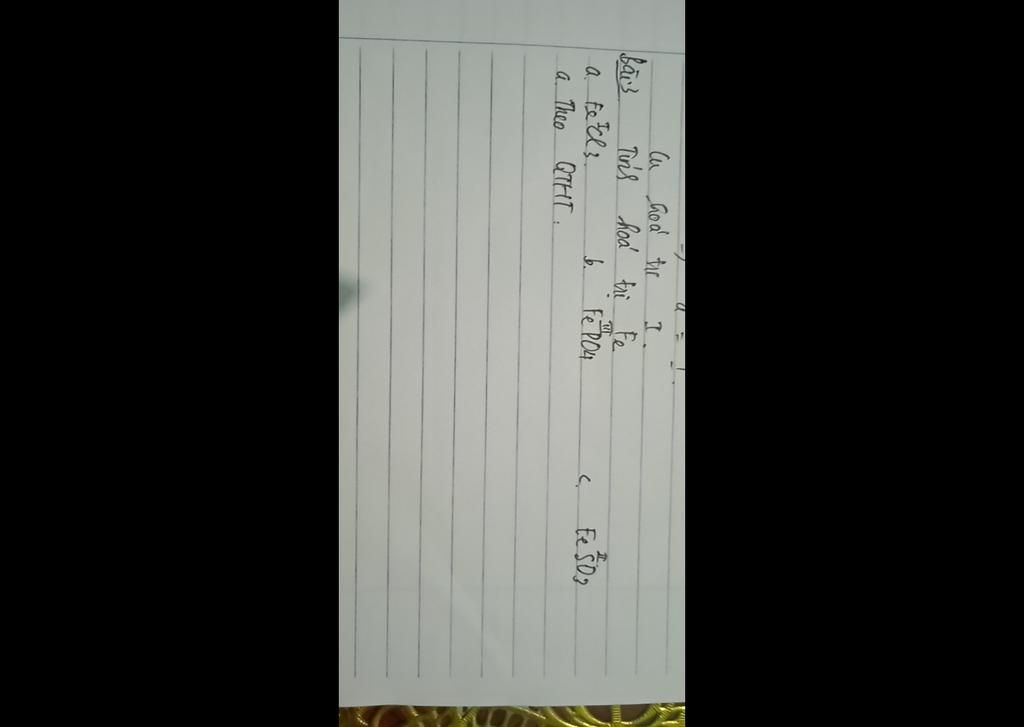 → a = 1.
Cu hoá trị I.
bài 3 Tính hoá trị Fe
a. FeᴵCl₃. b. Feᴵᴵᴵ PO₄ c. Feᴵᴵ SO₃
a. Theo QTHT: